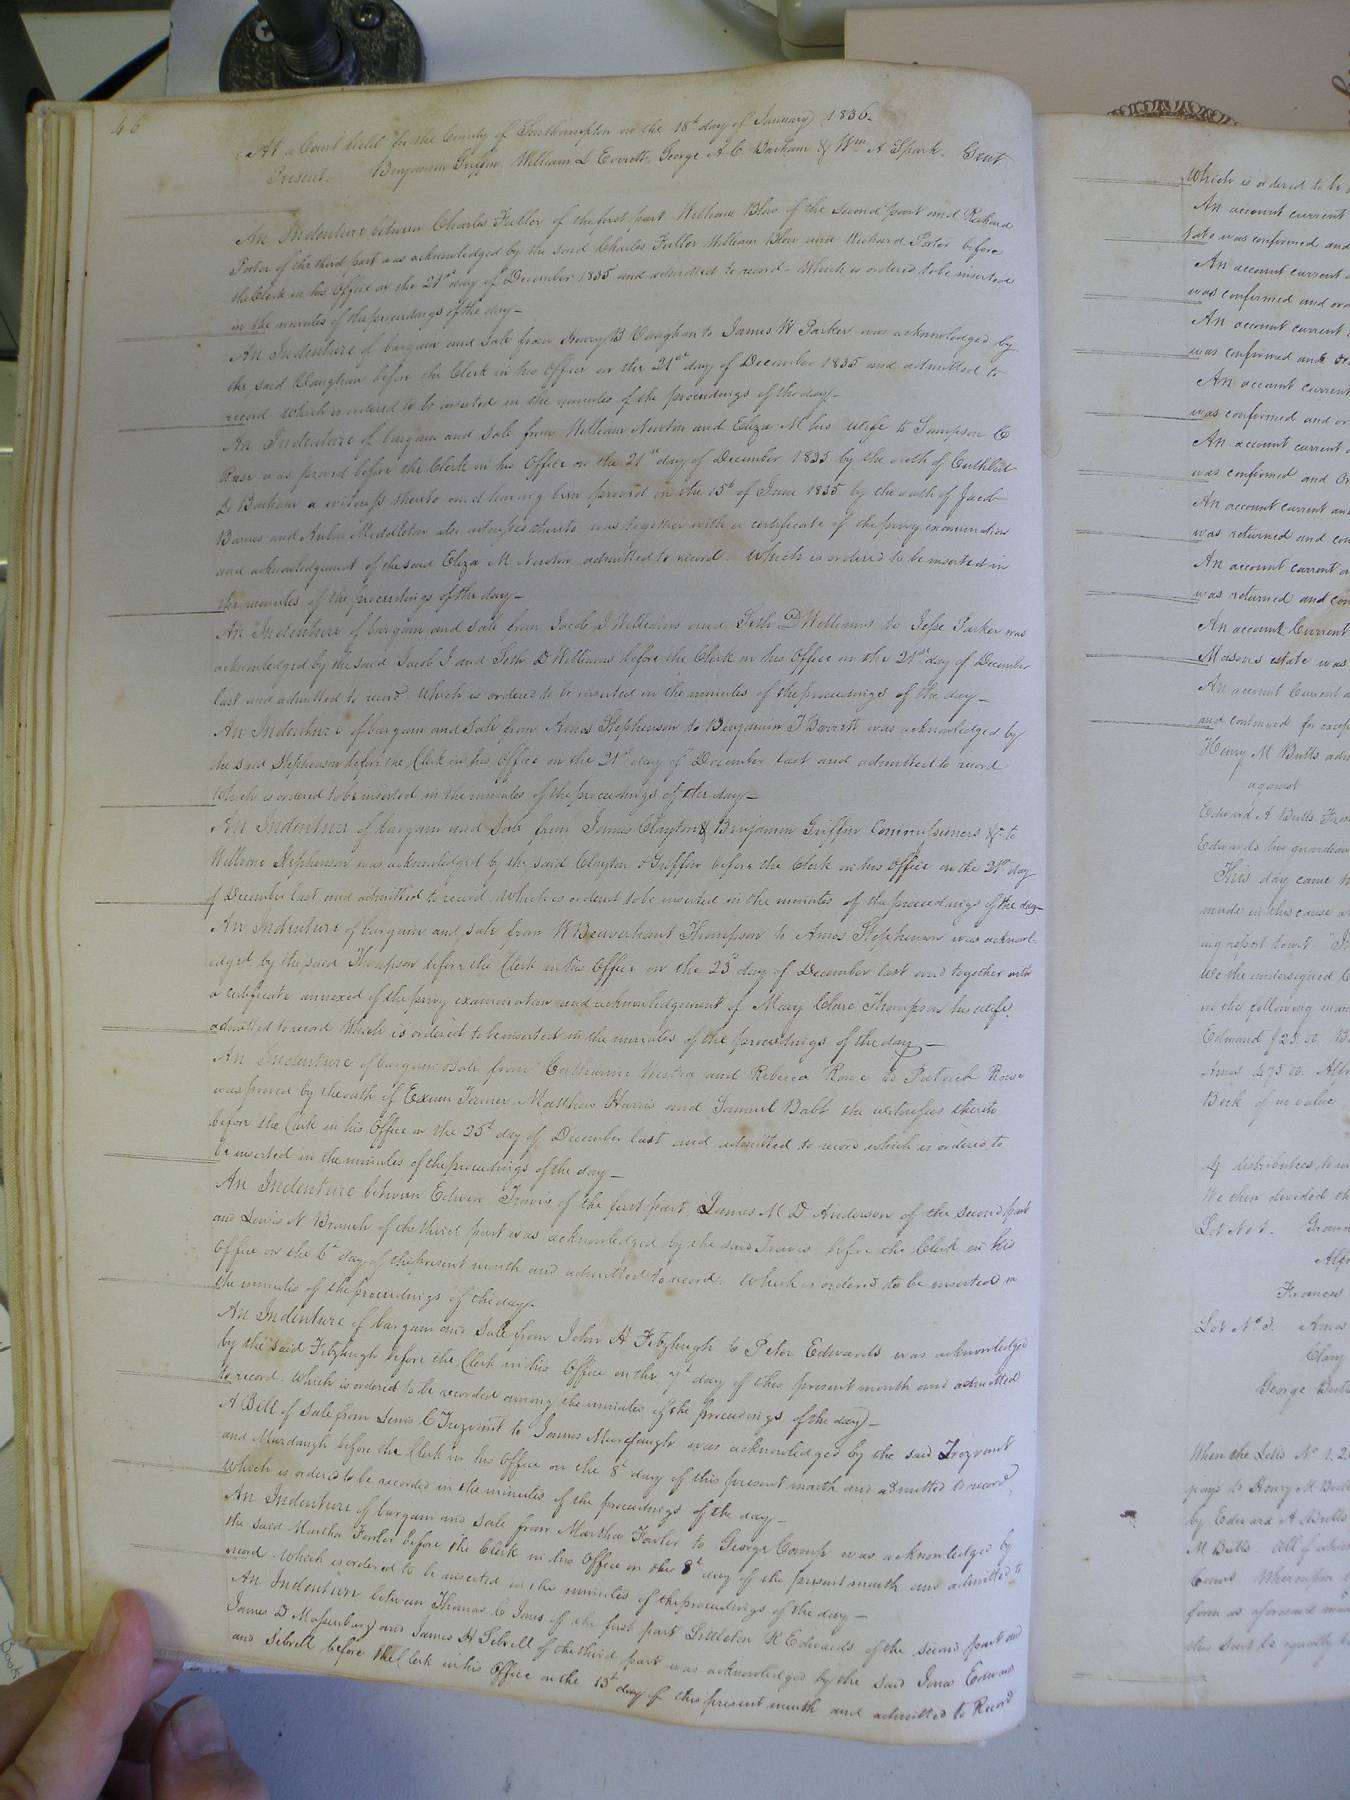 46
At a Court held for the County of Southampton on the 18th day of January 1836.
Present. Benjamin Griffin, William D Everett, George A C Barham & Wm A Spark. Gent
An Indenture between Charles Fuller of the first part William Blow of the second part and Richard
Porter of the third part was acknowledged by the said Charles Fuller William Blow and Richard Porter before
the Clerk in his Office on the 21st day of December 1835 and admitted to record - Which is ordered to be inserted
in the minutes of the proceedings of the day -
An Indenture of bargain and sale from Henry B Vaughan to James W Parker was acknowledged by
the said Vaughan before the Clerk in his Office on the 21st day of December 1835 and admitted to
record which is ordered to be inserted in the minutes of the proceedings of the day -
An Indenture of bargain and sale from William Newton and Eliza M his wife to Sampson C
Reese was proved before the Clerk in his Office on the 21st day of December 1835 by the oath of Cuthbert
D Barham a witness thereto and having been proved on the 15th of June 1835 by the oath of Jacob
Barnes and Middleton also witnesses thereto was together with a certificate of the privy examination
and acknowledgement of the said Eliza M Newton admitted to record. Which is ordered to be inserted in
the minutes of the proceedings of the day -
An Indenture of bargain and sale from Jacob J Williams and Seth D Williams to Jesse Parker was
acknowledged by the said Jacob J and Seth D Williams before the Clerk in his Office on the 21st day of December
last and admitted to record Which is ordered to be inserted in the minutes of the proceedings of the day -
An Indenture of bargain and sale from Amos Stephenson to Benjamin J Barrett was acknowledged by
the said Stephenson before the Clerk in his Office on the 21st day of December last and admitted to record
Which is ordered to be inserted in the minutes of the proceedings of the day -
An Indenture of bargain and sale from James Clayton & Benjamin Griffin Commissioners &c to
William Stephenson was acknowledged by the said Clayton & Griffin before the Clerk in his Office on the 21st day
of December last and admitted to record which is ordered to be inserted in the minutes of the proceedings of the day -
An Indenture of bargain and sale from W Beaverhunt Thompson to Amos Stephenson was acknowl-
edged by the said Thompson before the Clerk in his Office on the 23d day of December last and together with
a certificate annexed of the privy examination and acknowledgement of Mary Clare Thompson his wife
admitted to record Which is ordered to be inserted in the minutes of the proceedings of the day -
An Indenture of bargain & sale from Catharine and Rebecca Rowe to Patrick Rowe
was proved by the oath of Exum Turner Matthew Harris and Samuel Babb the witnesses thereto
before the Clerk in his Office on the 25th day of December last and admitted to record which is ordered to
be inserted in the minutes of the proceedings of the day -
An Indenture between Edwin Travis of the first part, James M D Anderson of the second part
and Lewis N Branch of the third part was acknowledged by the said Travis before the Clerk in his
Office on the 6th day of the present month and admitted to record. Which is ordered to be inserted in
the minutes of the proceedings of the day.
An Indenture of bargain and sale from John H Fitzhugh to Peter Edwards was acknowledged
by the said Fitzhugh before the Clerk in his Office on the 7th day of this present month and admitted
to record. Which is ordered to be recorded among the minutes of the proceedings of the day -
A Bill of sale from Lewis C Trezvant to James Murdaugh was acknowledged by the said Trezvant
and Murdaugh before the Clerk in his Office on the 8th day of this present month and admitted to record,
Which is ordered to be recorded in the minutes of the proceedings of the day -
An Indenture of bargain and sale from Martha Fowler to George Camp was acknowledged by
the said Martha Fowler before the Clerk in his Office on the 8th day of the present month and admitted to
record. Which is ordered to be inserted in the minutes of the proceedings of the day -
An Indenture between Thomas C Jones of the first part Littleton R Edwards of the second part and
James D Massenburg and James H Sebrell of the third part was acknowledged by the said Jones Edwards
and Sebrell before the Clerk in his Office on the 15th day of this present month and admitted to Record
Which is ordered to be
An account current
tate was confirmed and
An account current
was confirmed and
An account current
was confirmed and
An account current
was confirmed and
An account current
was confirmed and
An account current and
was returned and
An account current
was returned and
An account Current
Masons estate was
An account Current
and continued for
Henry M Butts
against
Edward A Butts
Edwards his guardian
This day came
made in this cause
ing report to wit
We the undersigned
in the following
Edmund $25.00
Amos $475.00.
Beck of no value
4 distributees
We then divided
Lot No 1.
Frances
Lot No 3. Amos
Clary
George
When the Lotts No 1. 2
pays to Henry M Butts
by Edward A Butts
M Butts. All of which
Court Whereupon
form as aforesaid
this suit be equally